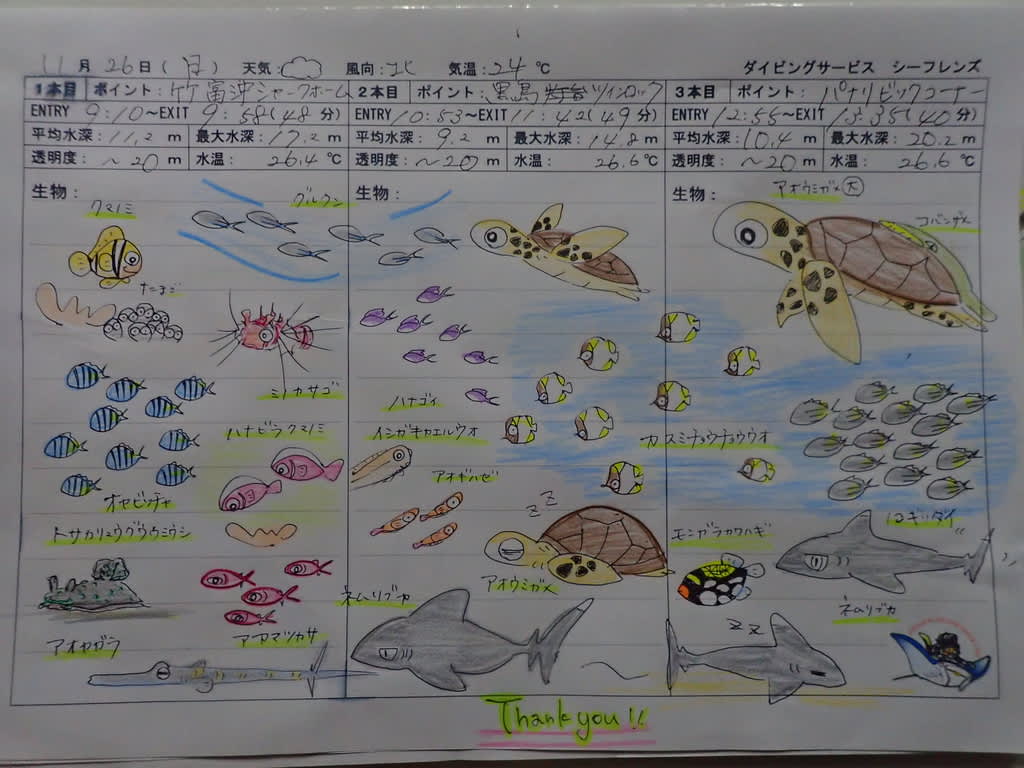 11月26日(日) 天気: 風向:北 気温:24℃ ダイビングサービス シーフレンズ
1本目 ポイント:竹富沖シャークホーム
ENTRY 9:10～EXIT 9:58(48分)
平均水深:11.2m 最大水深:17.2m
透明度:～20m 水温:26.4℃
生物:
クマノミ
グルクン
たまご
ミノカサゴ
ハナビラクマノミ
オヤビッチャ
トサカリュウグウウミウシ
アオヤガラ
アカマツカサ
2本目 ポイント:黒島 ツインロック
ENTRY 10:53～EXIT 11:42(49分)
平均水深:9.2m 最大水深:14.8m
透明度:～20m 水温:26.6℃
生物:
ハナゴイ
イシガキカエルウオ
アオギハゼ
zz
アオウミガメ
ネムリブカ
3本目 ポイント:パナリビックコーナー
ENTRY 12:55～EXIT 13:35(40分)
平均水深:10.4m 最大水深:20.2m
透明度:～20m 水温:26.6℃
生物:
アオウミガメ大
コバンザメ
カスミチョウチョウウオ
ロギノダイ
モンガラカワハギ
ネムリブカ
zz
Thank you!!